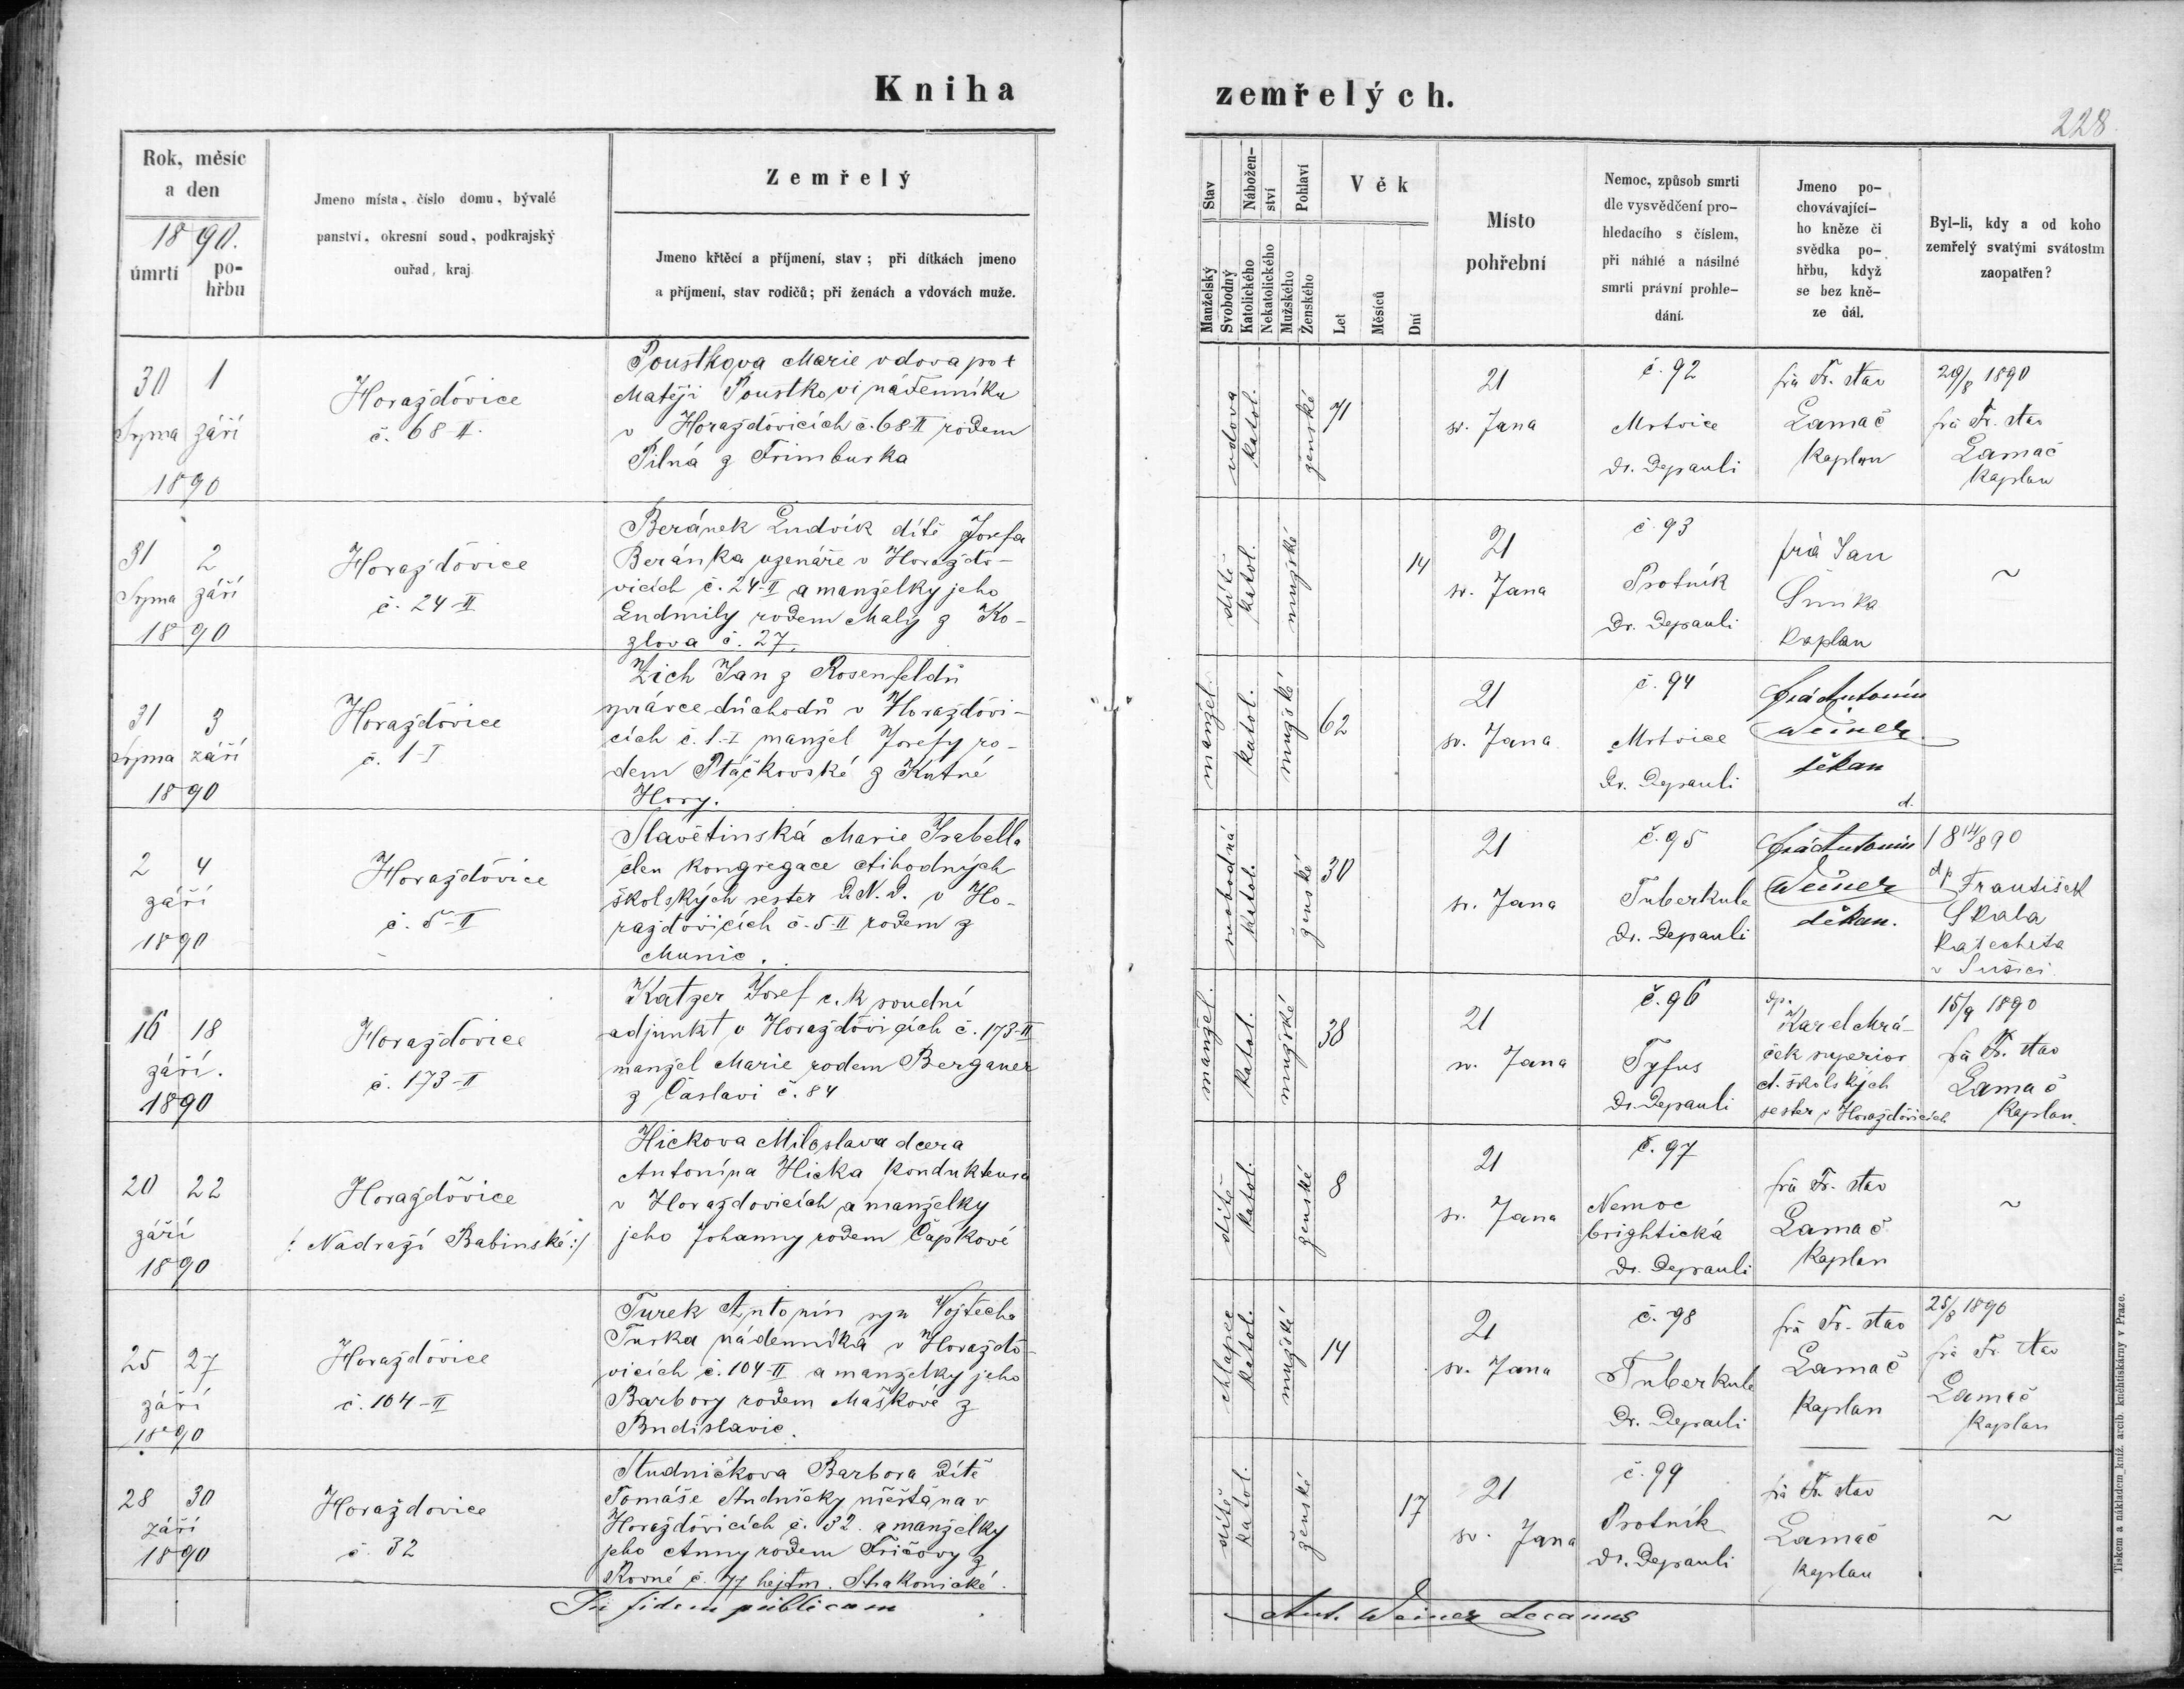 Kniha
zemřelých.
228.
Rok, měsíc
a den
1890.
úmrtí
po-
hřbu
Jmeno místa, číslo domu, bývalé
panství, okresní soud, podkrajský
ouřad, kraj
Zemřelý
Jmeno křtěcí a příjmení, stav; při dítkách jmeno
a příjmení, stav rodičů; při ženách a vdovách muže.
Stav
Manželský
Svobodný
Nábožen-
ství
Katolického
Nekatolického
Pohlaví
Mužského
Ženského
Věk
Let
Měsíců
Dní
Místo
pohřební
Nemoc, způsob smrti
dle vysvědčení pro-
hledacího s číslem,
při náhlé a násilné
smrti právní prohle-
dání.
Jmeno po-
chovávající-
ho kněze či
svědka po-
hřbu, když
se bez kně-
ze dál.
Byl-li, kdy a od koho
zemřelý svatými svátostm
zaopatřen?
30 1
Srpna září
1890
Horažďovice
č. 68 II.
Poustkova Marie vdova po +
Matěji Poustkovi nádenníku
v Horažďovicích č. 68 II rodem
Pilná z Frimburka
vdova
katol.
ženské
71
21
sv. Jana
č. 92
Mrtvice
Dr. Depauli
frà Fr. Stav
Lamač
Kaplan
29/8 1890
frà Fr. Stav
Lamač
Kaplan
31 2
Srpna září
1890
Horažďovice
č. 24-II
Beránek Ludvík dítě Josefa
Beránka uzenáře v Horažďo-
vicích č. 24-II a manželky jeho
Ludmily rodem Malý z Ko-
zlova č. 27.
dítě
katol.
mužské
14
21
sv. Jana
č. 93
Psotník
Dr. Depauli
frà Jan
Šimka
Kaplan
~
31 3
Srpna září
1890
Horažďovice
č. 1-I
Zich Jan z Rosenfeldů
správce důchodů v Horažďovi-
cích č. 1-I manžel Josefy ro-
dem Ptáčkovské z Kutné
Hory.
manžel.
katol.
mužské
62
21
sv. Jana
č. 94
Mrtvice
Dr. Depauli
frà Antonín
Weiner
děkan
d.
2 4
září
1890
Horažďovice
č. 5-II
Slavětinská Marie Isabella
člen kongregace ctihodných
školských sester D. N. D. v Ho-
ražďovicích č. 5-II rodem z
Munic.
svobodná
katol.
ženské
30
21
sv. Jana
č. 95
Tuberkule
Dr. Depauli
frà Antonín
Weiner
děkan.
18 14/8 90
dp František
Skala
Katecheta
v Sušici
16 18
září.
1890
Horažďovice
č. 173-II
Katzer Josef c. k soudní
adjunkt v Horažďovicích č. 173-II
manžel Marie rodem Berganer
z Čáslavi č. 84
manžel.
katol.
mužské
38
21
sv. Jana
č. 96
Tyfus
Dr. Depauli
dp.
Karel Mrá-
ček superior
ct. školských
sester v Horažďovicích
15/9 1890
frà Fr. Stav
Lamač
Kaplan.
20 22
září
1890
Horažďovice
/: Nádraží Babinské :/
Hickova Miloslava dcera
Antonína Hicka kondukteura
v Horažďovicích a manželky
jeho Johanny rodem Čapkové
dítě
katol.
ženské
8
21
sv. Jana
č. 97
Nemoc
brightická
Dr. Depauli
frà Fr. Stav
Lamač
Kaplan
~
25 27
září
1890
Horažďovice
č. 104-II
Turek Antonín syn Vojtěcha
Turka nádenníka v Horažďo-
vicích č. 104-II a manželky jeho
Barbory rodem Maškové z
Budislavic.
chlapec
katol.
mužské
14
21
sv. Jana
č. 98
Tuberkule
Dr. Depauli
frà Fr. Stav
Lamač
Kaplan
25/8 1890
frà Fr. Stav
Lamač
Kaplan
28 30
září
1890
Horažďovice
č. 32
Studničkova Barbora dítě
Tomáše Studničky měšťana v
Horažďovicích č. 32. a manželky
jeho Anny rodem Fričovy z
Rovné č. 77 hejtm. Strakonické.
dítě
katol.
ženské
17
21
sv. Jana
č. 99
Psotník
Dr. Depauli
frà Fr. Stav
Lamač
Kaplan
~
In fidem publicam
Ant. Weiner Decanus
Tiskem a nákladem kníž. arcib. kněhtiskárny v Praze.